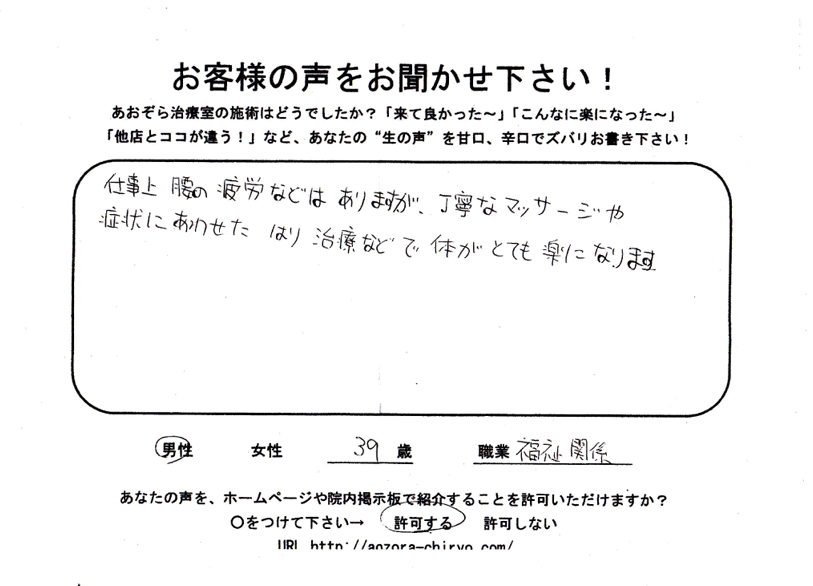 お客様の声をお聞かせ下さい！
あおぞら治療室の施術はどうでしたか？「来て良かった～」「こんなに楽になった～」
「他店とココが違う！」など、あなたの“生の声”を甘口、辛口でズバリお書き下さい！
仕事上 腰の 疲労などは ありますが、丁寧なマッサージや
症状にあわせた はり 治療などで 体がとても 楽になります
男性 女性 39 歳 職業 福祉関係
あなたの声を、ホームページや院内掲示板で紹介することを許可いただけますか？
○をつけて下さい→ 許可する 許可しない
URL http://aozora-chiryo.com/